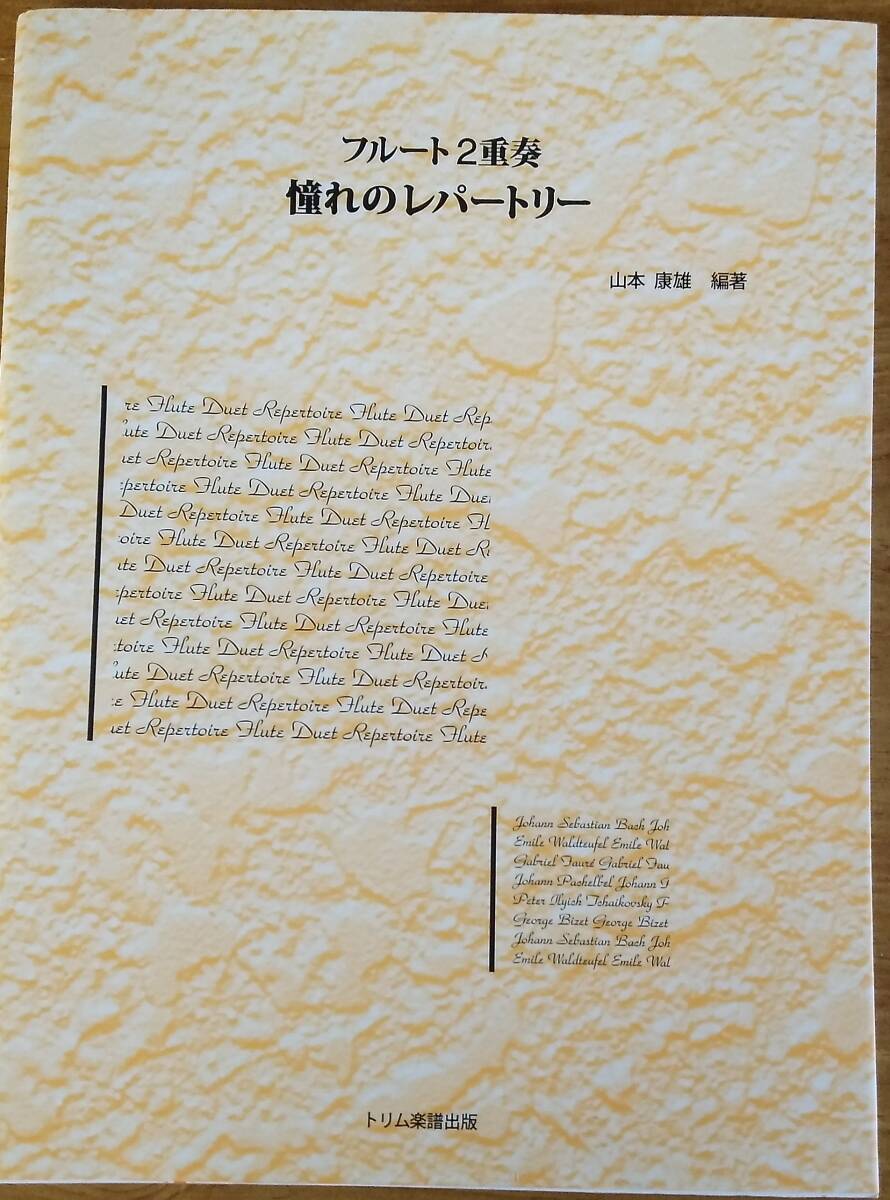 フルート2重奏
憧れのレパートリー
山本 康雄 編著
re Flute Duet Repertoire Flute Duet Rep
ute Duet Repertoire Flute Duet Repertoir
uet Repertoire Flute Duet Repertoire Flute
pertoire Flute Duet Repertoire Flute Duet
Duet Repertoire Flute Duet Repertoire Fl
oire Flute Duet Repertoire Flute Duet Re
ute Duet Repertoire Flute Duet Repertoire
pertoire Flute Duet Repertoire Flute Due
uet Repertoire Flute Duet Repertoire Flute
toire Flute Duet Repertoire Flute Duet R
ute Duet Repertoire Flute Duet Repertoir
e Flute Duet Repertoire Flute Duet Repe
uet Repertoire Flute Duet Repertoire Flute
Johann Sebastian Bach Joh
Emile Waldteufel Emile Wal
Gabriel Fauré Gabriel Fau
Johann Pachelbel Johann P
Peter Ilyich Tchaikovsky P
George Bizet George Bizet
Johann Sebastian Bach Joh
Emile Waldteufel Emile Wal
トリム楽譜出版